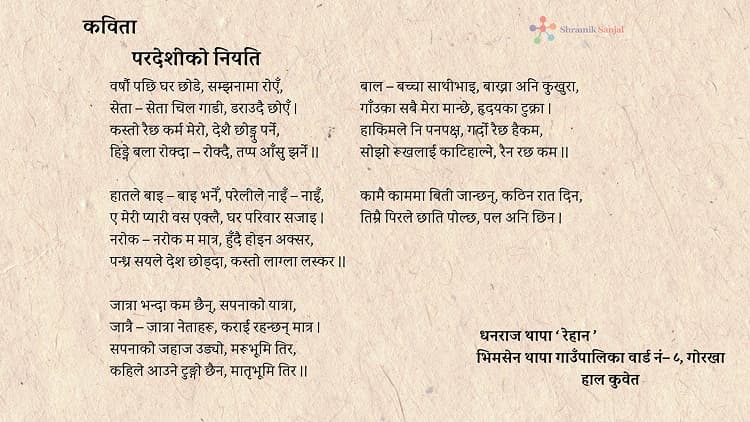 कविता
Shramik Sanjal
परदेशीको नियति
वर्षौ पछि घर छोडे, सम्झनामा रोएँ,
सेता – सेता चिल गाडी, डराउदै छोएँ ।
कस्तो रैछ कर्म मेरो, देशै छोड्नु पर्ने,
हिड्ने बला रोक्दा – रोक्दै, तप्प आँसु झर्ने ॥
हातले बाइ – बाइ भनेँ, परेलीले नाइँ – नाइँ,
ए मेरी प्यारी वस एक्लै, घर परिवार सजाइ ।
नरोक – नरोक म मात्र, हुँदै होइन अक्सर,
पन्ध्र सयले देश छोड्दा, कस्तो लाग्ला लस्कर ॥
जात्रा भन्दा कम छैन्, सपनाको यात्रा,
जात्रै – जात्रा नेताहरू, कराई रहन्छन् मात्र ।
सपनाको जहाज उड्यो, मरूभूमि तिर,
कहिले आउने टुङ्गो छैन, मातृभूमि तिर ॥
बाल – बच्चा साथीभाइ, बाख्रा अनि कुखुरा,
गाँउका सबै मेरा मान्छे, हृदयका टुक्रा ।
हाकिमले नि पनपक्ष, गर्दो रैछ हैकम,
सोझो रूखलाई काटिहाल्ने, रैन रछ कम ॥
कामै काममा बिती जान्छन्, कठिन रात दिन,
तिम्रै पिरले छाति पोल्छ, पल अनि छिन ।
धनराज थापा ‘ रेहान ’
भिमसेन थापा गाउँपालिका वार्ड नं– ८, गोरखा
हाल कुवेत